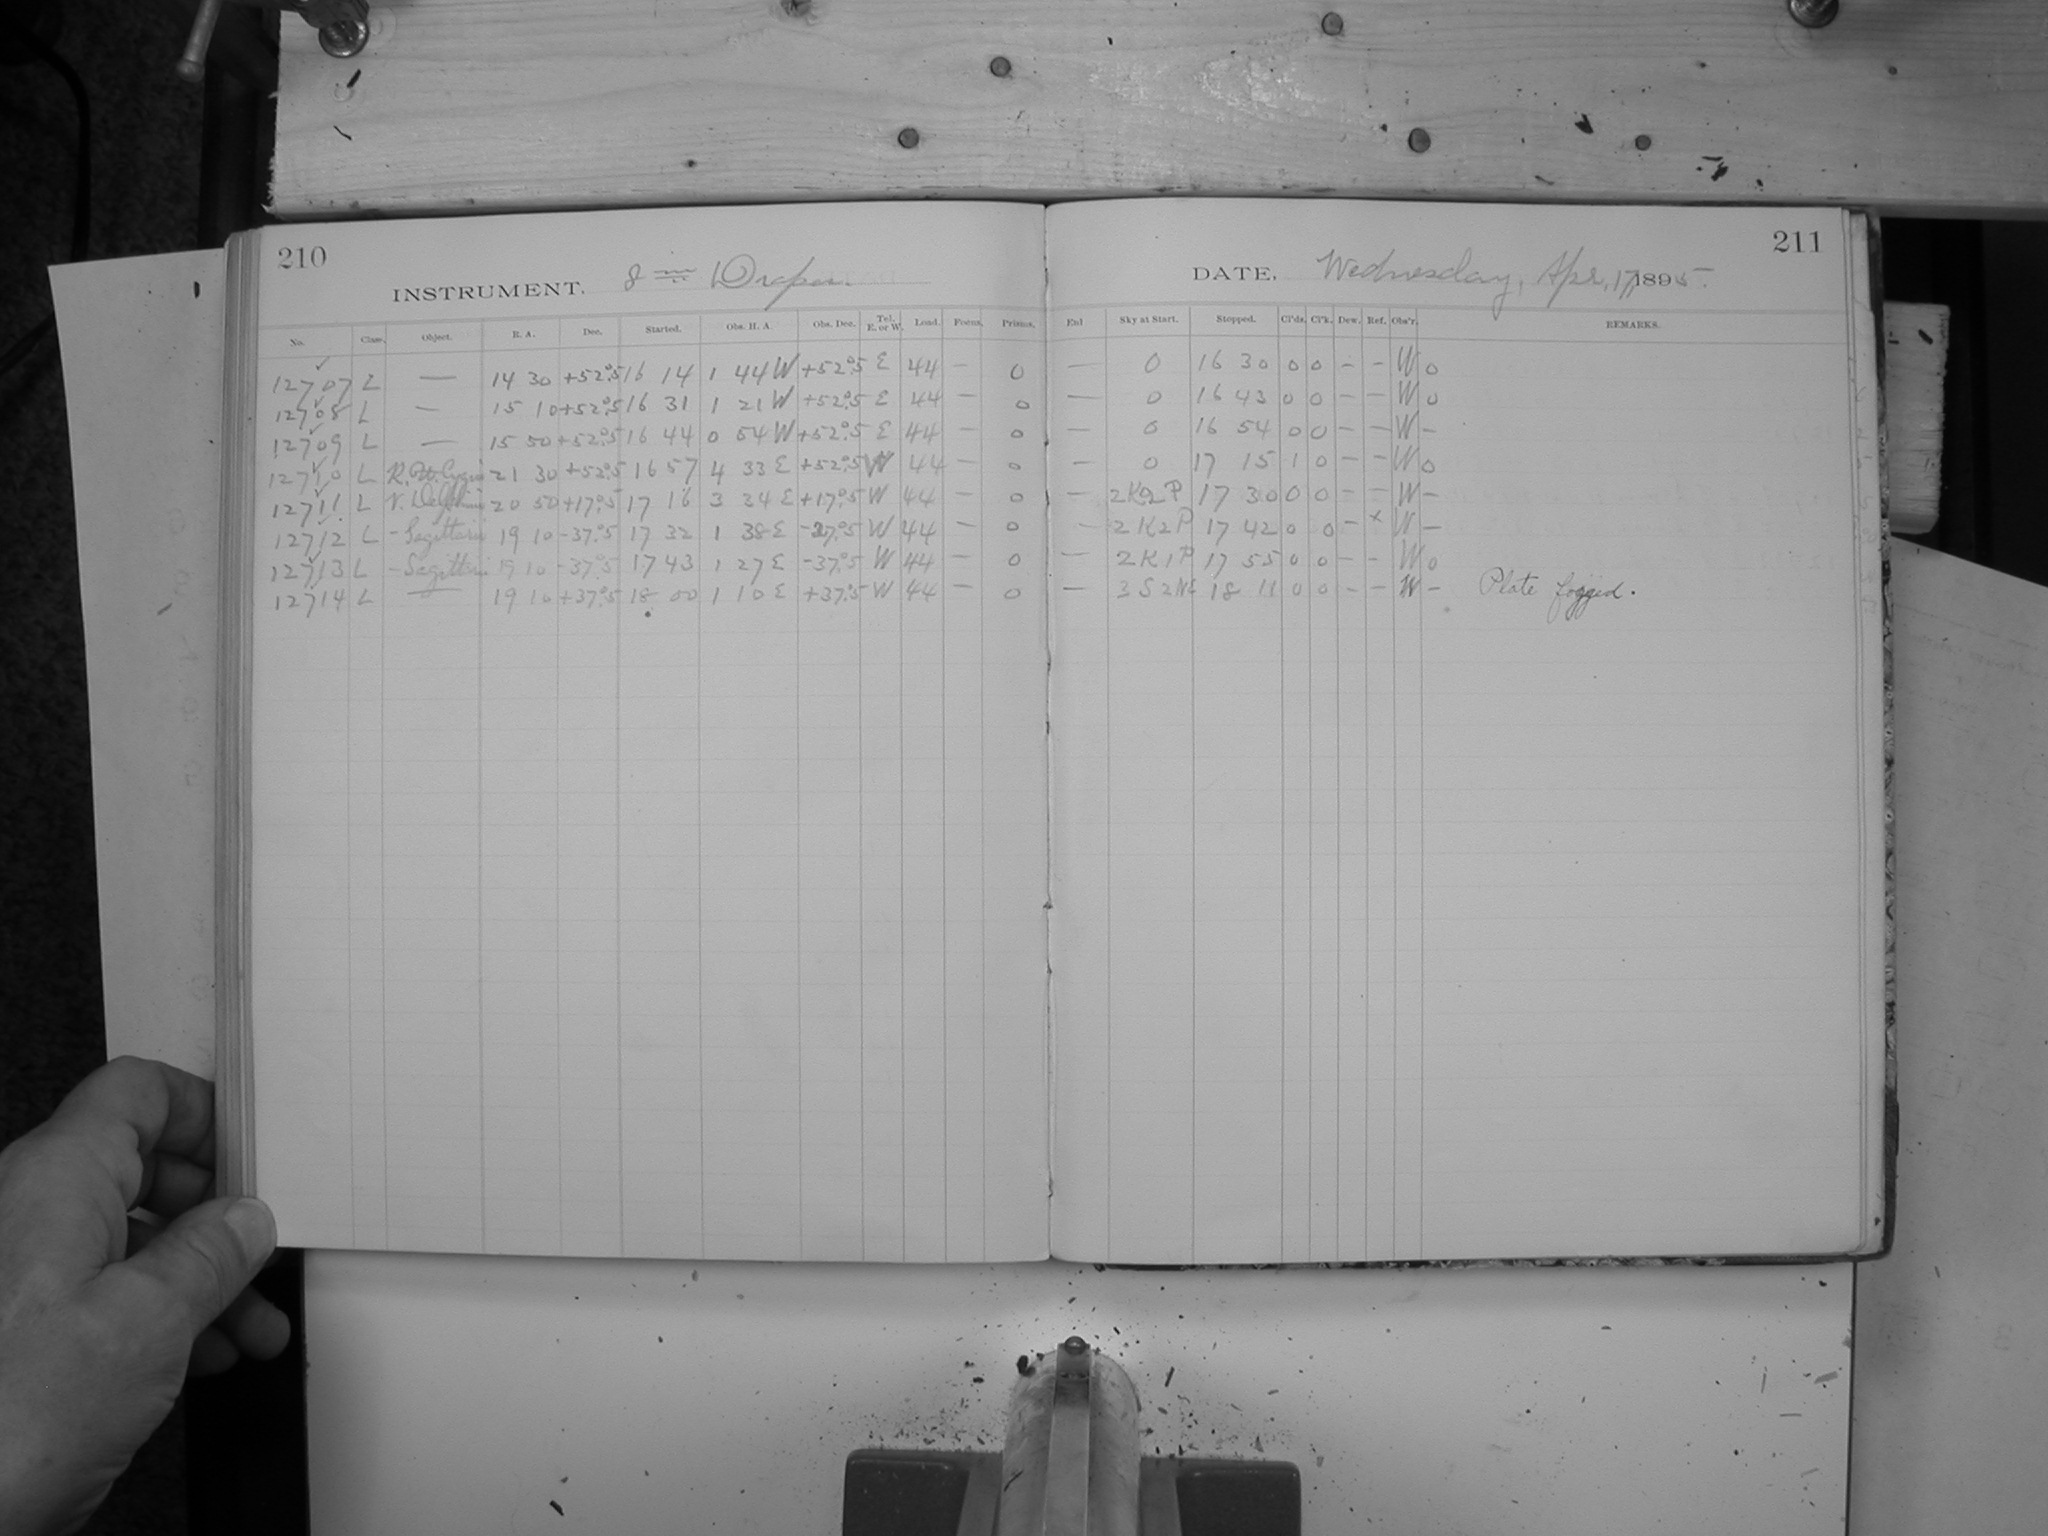 210
INSTRUMENT. 8 in Draper.
No. Class. Object. R. A. Dec. Started. Obs. H. A. Obs. Dec. Tel. E. or W. Load. Focus. Prisms.
12707 L — 14 30 +52°.5 16 14 1 44 W +52°.5 E 44 — 0
12708 L — 15 10 +52°.5 16 31 1 21 W +52°.5 E 44 — 0
12709 L — 15 50 +52°.5 16 44 0 54 W +52°.5 E 44 — 0
12710 L 21 30 +52°.5 16 57 4 33 E +52°.5 W 44 — 0
12711 L 20 50 +17°.5 17 16 3 34 E +17°.5 W 44 — 0
12712 L - Sagittarii 19 10 -37°.5 17 32 1 38 E -37°.5 W 44 — 0
12713 L - Sagittarii 19 10 -37°.5 17 43 1 27 E -37°.5 W 44 — 0
12714 L — 19 10 +37°.5 18 00 1 10 E +37°.5 W 44 — 0
211
DATE. Wednesday, Apr. 17, 1895.
Enl Sky at Start. Stopped. Cl'ds. Cl'k. Dew. Ref. Obs'r. REMARKS.
— 0 16 30 0 0 - - W 0
— 0 16 43 0 0 - - W 0
— 0 16 54 0 0 - - W -
— 0 17 15 1 0 - - W 0
— 2K2P 17 30 0 0 - - W -
— 2K2P 17 42 0 0 - x W -
— 2K1P 17 55 0 0 - - W 0
— 18 11 0 0 - - W - Plate fogged.